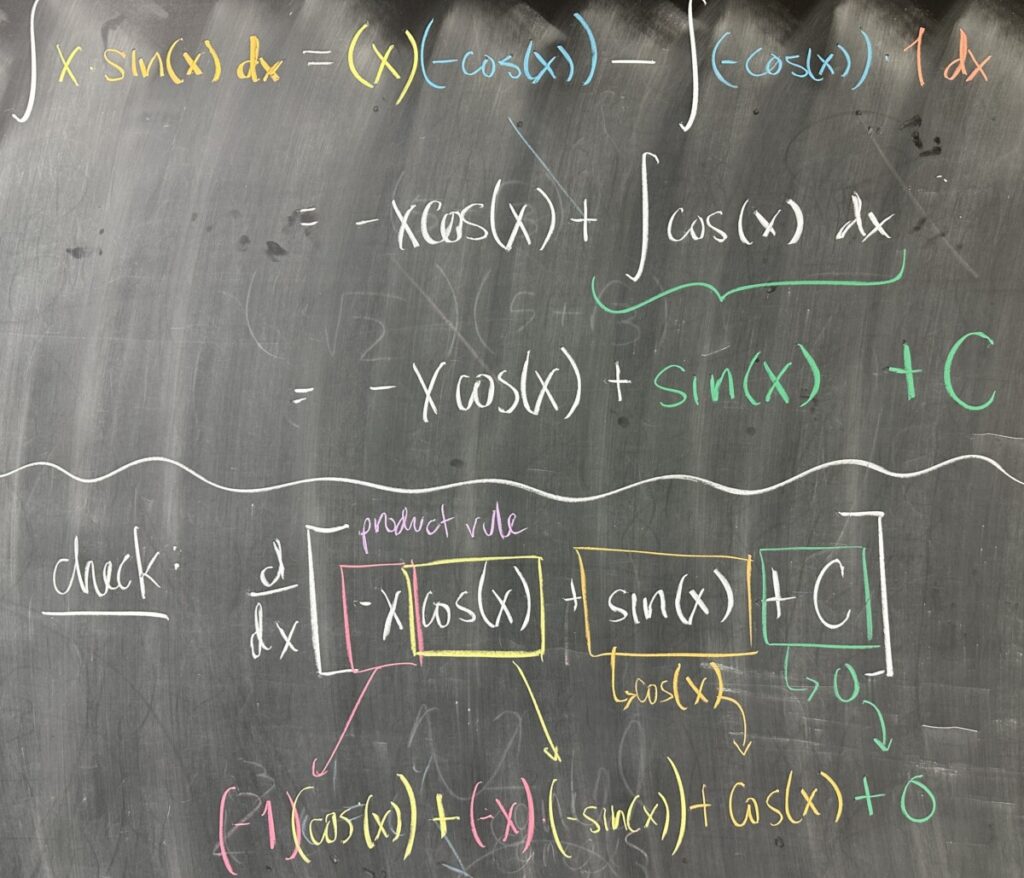 ∫ x · sin(x) dx = (x)(-cos(x)) - ∫ (-cos(x)) · 1 dx
= - x cos(x) + ∫ cos(x) dx
= - x cos(x) + sin(x) + C
product rule
check: d/dx [ -x cos(x) + sin(x) + C ]
↳ cos(x) ↳ 0
(-1)(cos(x)) + (-x) · (-sin(x)) + cos(x) + 0